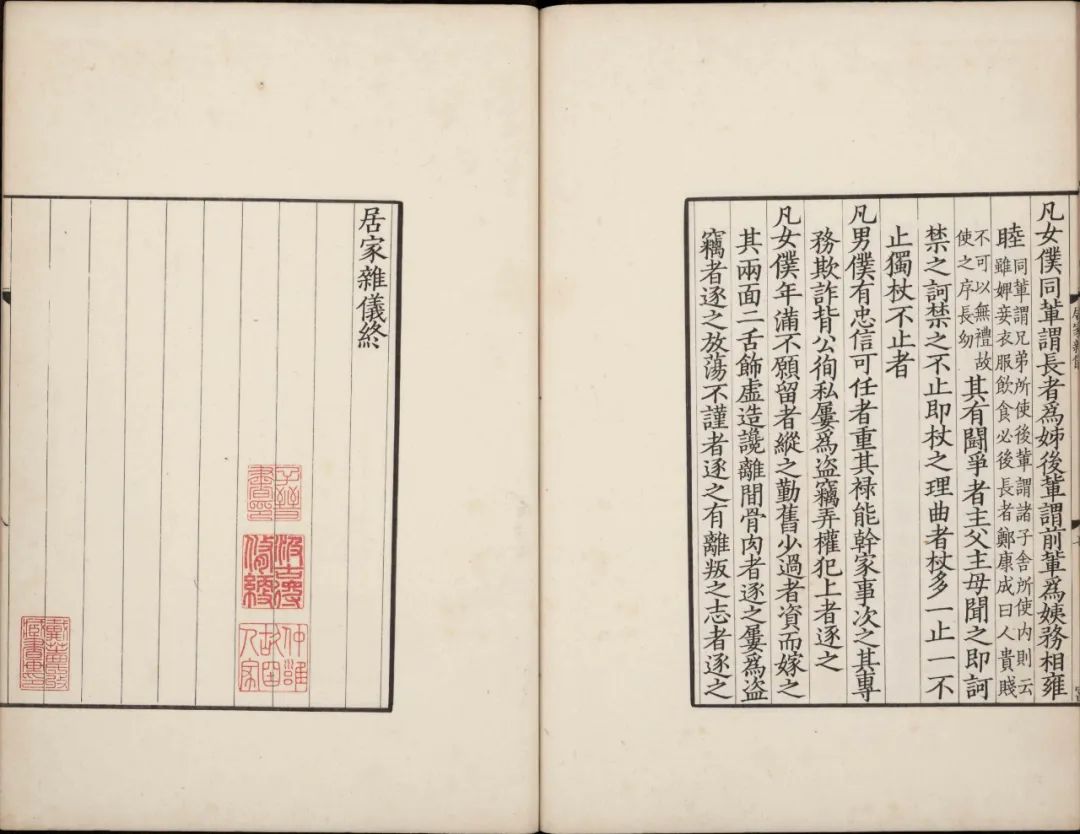 凡女僕同輩謂長者爲姊後輩謂前輩爲姨務相雍
睦
同輩謂兄弟所使後輩謂諸子舍所使内則云
雖婢妾衣服飲食必後長者鄭康成曰人貴賤
不可以無禮故
使之序長幼
其有鬭爭者主父主母聞之即訶
禁之訶禁之不止即杖之理曲者杖多一止一不
止獨杖不止者
凡男僕有忠信可任者重其禄能幹家事次之其專
務欺詐背公徇私屢爲盜竊弄權犯上者逐之
凡女僕年滿不願留者縱之勤舊少過者資而嫁之
其兩面二舌飾虛造讒離間骨肉者逐之屢爲盜
竊者逐之放蕩不謹者逐之有離叛之志者逐之
居家雜儀終
子晉
書印
汲古得
脩綆